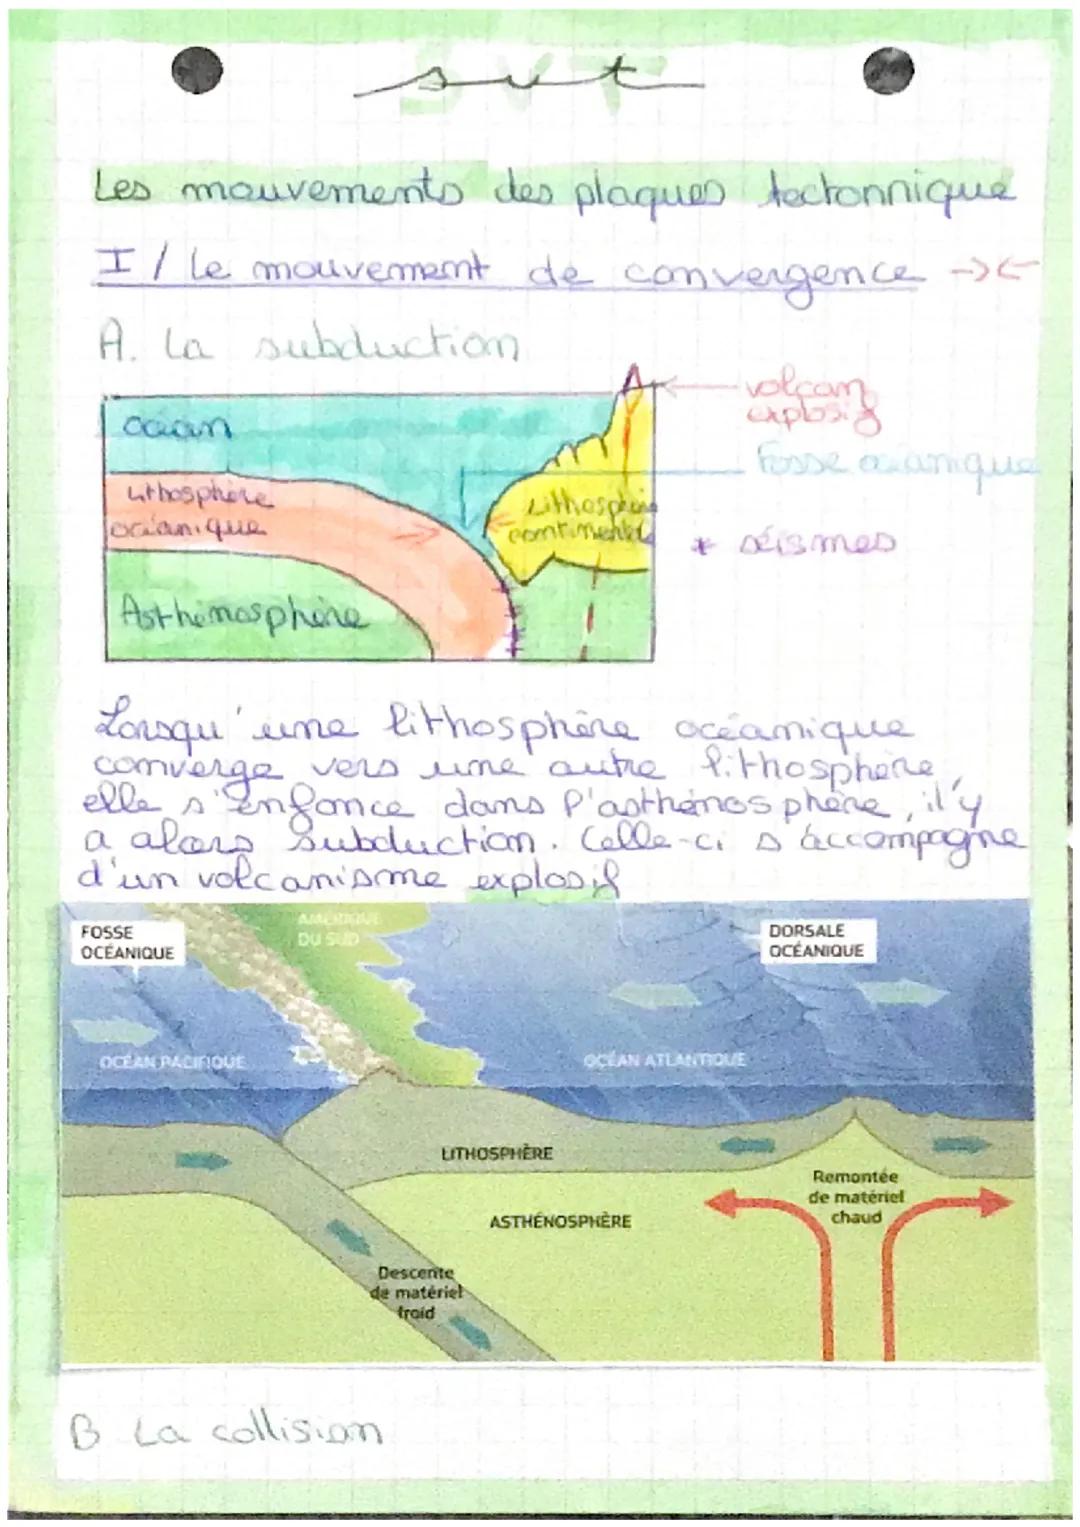 svt
SVT
Les mouvements des plaques tectonnique
I / Le mouvement de convergence →←
A. La subduction
volcan
explosif
océan
Fosse océanique
Lithosphère
océanique
Lithosphère
continentale
* séismes
Asthénosphère
Lorsqu'une lithosphère océanique
converge vers une autre lithosphère,
elle s'enfonce dans l'asthénosphère, il'y
a alors subduction. Celle-ci s'accompagne
d'un volcanisme explosif
FOSSE
OCÉANIQUE
AMÉRIQUE
DU SUD
DORSALE
OCÉANIQUE
OCÉAN PACIFIQUE
OCÉAN ATLANTIQUE
LITHOSPHÈRE
Remontée
de matériel
chaud
ASTHÉNOSPHÈRE
Descente
de matériel
froid
B La collision